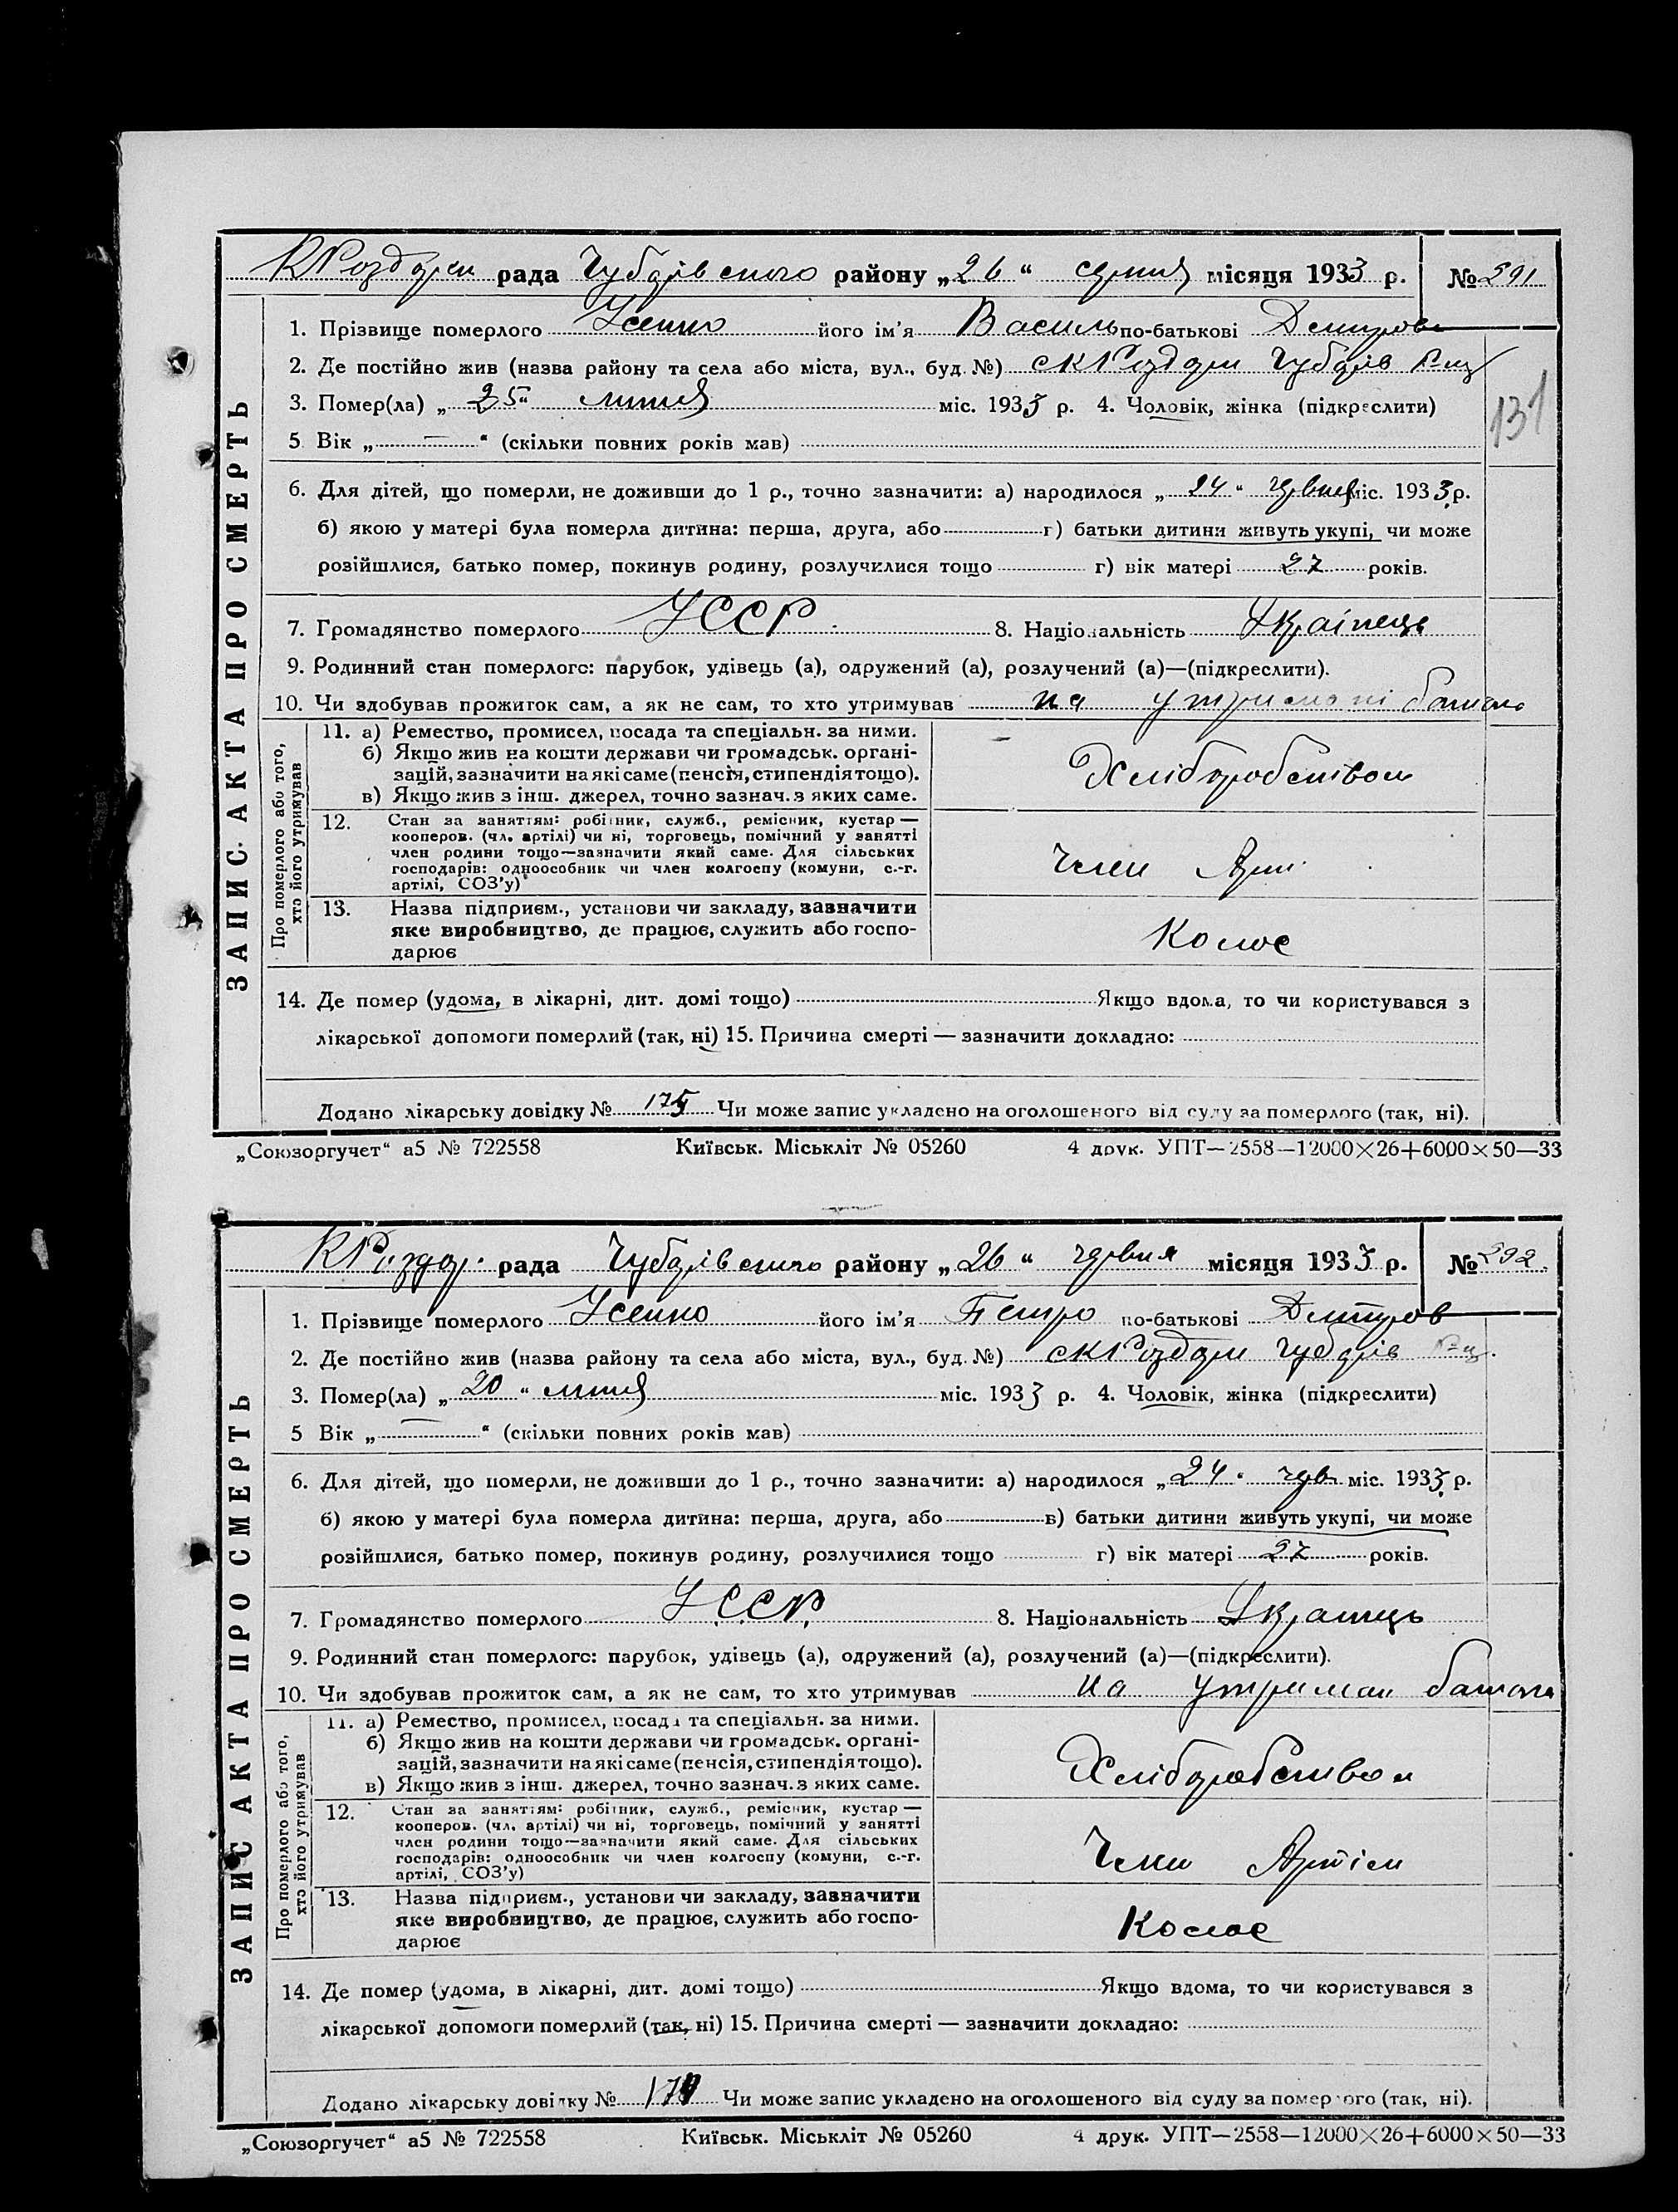 КРоздори рада Чубарівського району „26“ серпня місяця 1933 р. № 591
ЗАПИС АКТА ПРО СМЕРТЬ
1. Прізвище померлого Усенко його ім'я Василь по-батькові Дмитров
2. Де постійно жив (назва району та села або міста, вул., буд. №) с КРоздори Чубарів
3. Помер(ла) „25“ липня міс. 1933 р. 4. Чоловік, жінка (підкреслити)
131
5. Вік „—“ (скільки повних років мав)
6. Для дітей, що померли, не доживши до 1 р., точно зазначити: а) народилося „24“ червня міс. 1933 р.
б) якою у матері була померла дитина: перша, друга, або г) батьки дитини живуть укупі, чи може
розійшлися, батько помер, покинув родину, розлучилися тощо г) вік матері 27 років.
7. Громадянство померлого УССР 8. Національність Українець
9. Родинний стан померлого: парубок, удівець (а), одружений (а), розлучений (а)—(підкреслити).
10. Чи здобував прожиток сам, а як не сам, то хто утримував на утримані батька
Про померлого або того, хто його утримував
11. а) Ремество, промисел, посада та спеціальн. за ними.
б) Якщо жив на кошти держави чи громадськ. органі-
зацій, зазначити на які саме (пенсія, стипендія тощо).
в) Якщо жив з інш. джерел, точно зазнач. з яких саме.
Хліборобством
12. Стан за заняттям: робітник, служб., ремісник, кустар —
кооперов. (чл. артілі) чи ні, торговець, помічний у занятті
член родини тощо—зазначити який саме. Для сільських
господарів: одноособник чи член колгоспу (комуни, с.-г.
артілі, СОЗ'у)
Член Арт.
13. Назва підприєм., установи чи закладу, зазначити
яке виробництво, де працює, служить або госпо-
дарює
Колос
14. Де помер (удома, в лікарні, дит. домі тощо) Якщо вдома, то чи користувався з
лікарської допомоги померлий (так, ні) 15. Причина смерті — зазначити докладно:
Додано лікарську довідку № 175 Чи може запис укладено на оголошеного від суду за померлого (так, ні).
„Союзоргучет“ а5 № 722558 Київськ. Міськліт № 05260 4 друк. УПТ—2558—12000×26+6000×50—33
КРоздор. рада Чубарівського району „26“ червня місяця 1933 р. № 592.
ЗАПИС АКТА ПРО СМЕРТЬ
1. Прізвище померлого Усенко його ім'я Петро по-батькові Дмитров
2. Де постійно жив (назва району та села або міста, вул., буд. №) с КРоздори Чубарів
3. Помер(ла) „20“ липня міс. 1933 р. 4. Чоловік, жінка (підкреслити)
5 Вік „—“ (скільки повних років мав)
6. Для дітей, що померли, не доживши до 1 р., точно зазначити: а) народилося „24“ черв міс. 1933 р.
б) якою у матері була померла дитина: перша, друга, або в) батьки дитини живуть укупі, чи може
розійшлися, батько помер, покинув родину, розлучилися тощо г) вік матері 27 років.
7. Громадянство померлого У.ССР. 8. Національність Українець
9. Родинний стан померлого: парубок, удівець (а), одружений (а), розлучений (а)—(підкреслити).
10. Чи здобував прожиток сам, а як не сам, то хто утримував на утриман батька
Про померлого або того, хто його утримував
11. а) Ремество, промисел, посада та спеціальн. за ними.
б) Якщо жив на кошти держави чи громадськ. органі-
зацій, зазначити на які саме (пенсія, стипендія тощо).
в) Якщо жив з інш. джерел, точно зазнач. з яких саме.
Хліборобством
12. Стан за заняттям: робітник, служб., ремісник, кустар —
кооперов. (чл. артілі) чи ні, торговець, помічний у занятті
член родини тощо—зазначити який саме. Для сільських
господарів: одноособник чи член колгоспу (комуни, с.-г.
артілі, СОЗ'у)
Член Артіли
13. Назва підприєм., установи чи закладу, зазначити
яке виробництво, де працює, служить або госпо-
дарює
Колос
14. Де помер (удома, в лікарні, дит. домі тощо) Якщо вдома, то чи користувався з
лікарської допомоги померлий (так, ні) 15. Причина смерті — зазначити докладно:
Додано лікарську довідку № Чи може запис укладено на оголошеного від суду за померлого (так, ні).
„Союзоргучет“ а5 № 722558 Київськ. Міськліт № 05260 4 друк. УПТ—2558—12000×26+6000×50—33